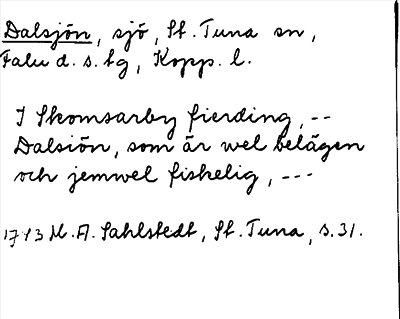 Dalsjön, sjö, St. Tuna sn,
Falu d. s. tg, Kopp. l.
I Skomsarby fierding, --
Dalsiön, som är wel belägen
och jemwel fiskelig, ---
1743 M. A. Sahlstedt, St. Tuna, s. 31.